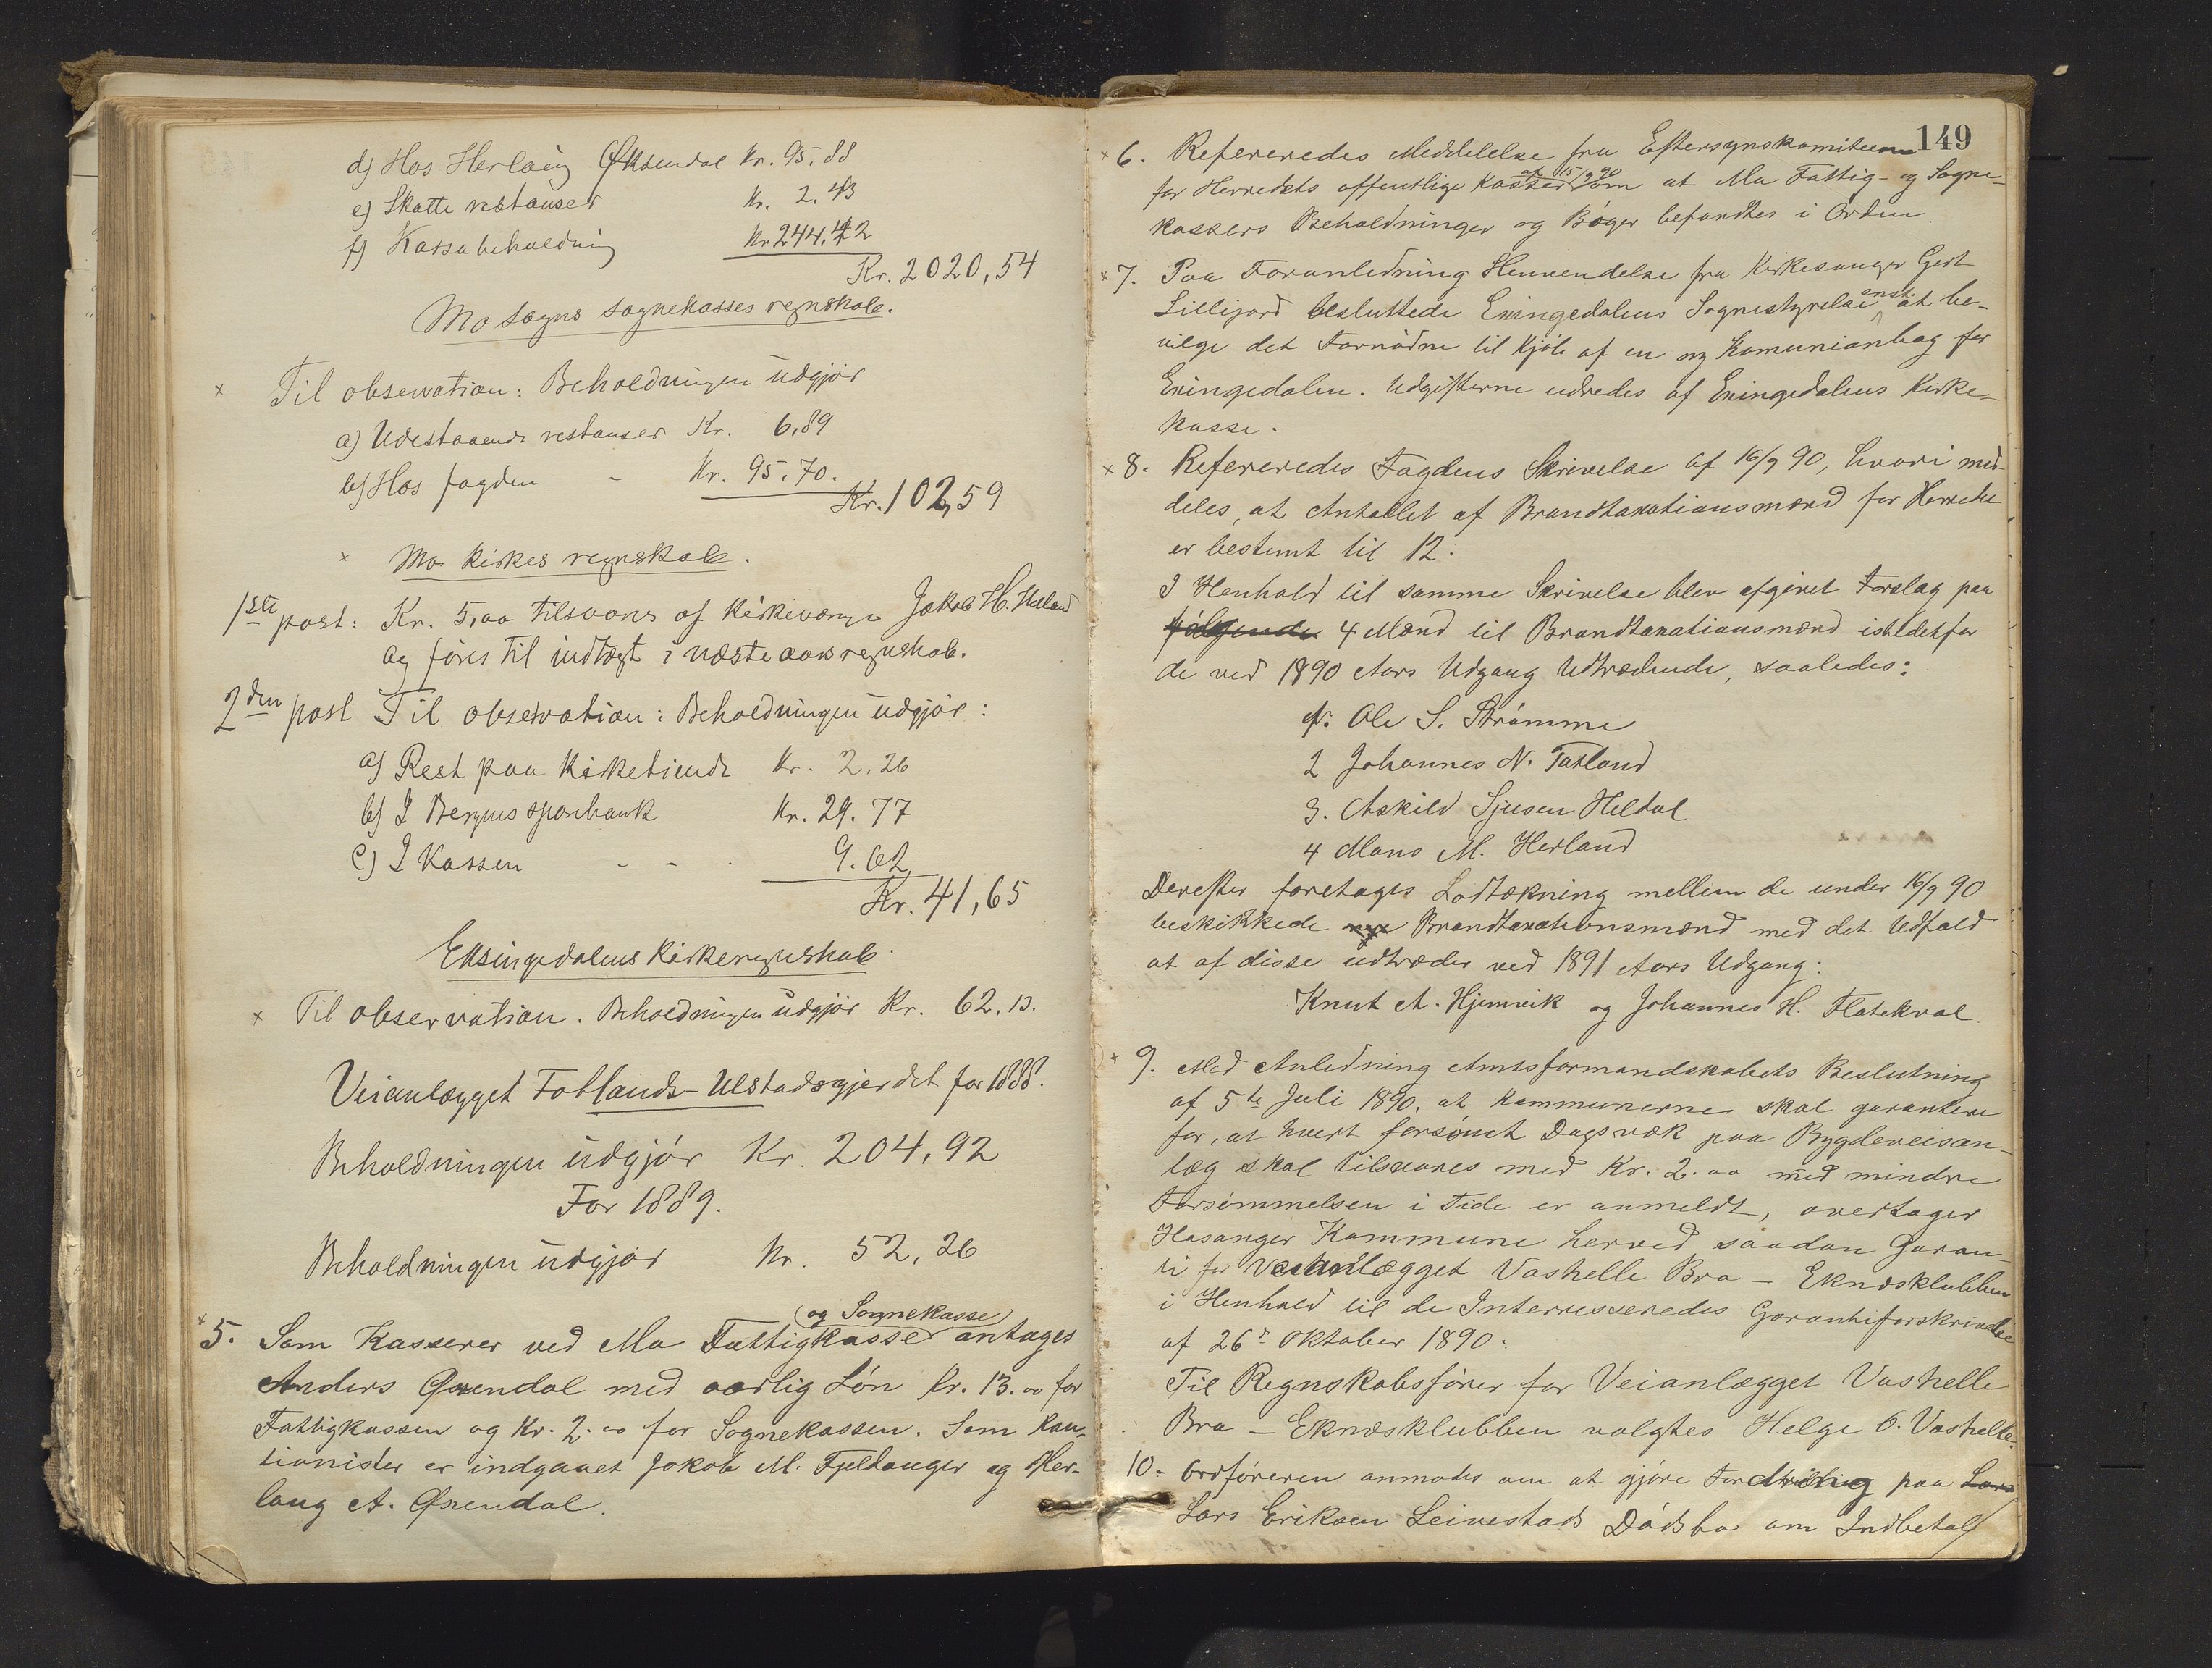 d) Hos Herlaug Øksendal Kr. 95.88
e) Skatte restanser Kr. 2.43
f) Kassabeholdning Kr 244,42
Kr. 2020,54
Mo Sogns Sognekasses regnskab.
x Til observation: Beholdningen udgjør
a) Udestaaende restanser Kr. 6,89
b) Hos fogden - Kr. 95.70.
Kr. 102,59
x Mo Kirkes regnskab.
1ste post: Kr. 5,00 tilsvares af Kirkeværge Jakob H.
og føres til indtægt i næste aars regnskab.
2den post Til observation: Beholdningen udgjør:
a) Rest paa Kirketiende Kr. 2.26
b) I Bergens sparbank Kr. 29.77
c) I Kassen - - . 9.62
Kr. 41,65
Eksingedalens Kirkeregnskab.
x Til observation. Beholdningen udgjør Kr. 62.13.
Veianlægget Fotlands-Ulstadsgjerdet for 1888.
Beholdningen udgjør Kr. 204,92
For 1889.
Beholdningen udgjør Kr. 52,26
(og Sognekasse)
x 5. Som Kasserer ved Mo Fattigkasse antages
Anders Øxendal med aarlig Løn Kr. 13.00 for
Fattigkassen og Kr. 2.00 for Sognekassen. Som Kau-
tionister er indgaaet Jakob M. Fjeldanger og Her-
laug A. Øxendal.
149
x 6. Refereredes Meddelelse fra Eftersynskomiteen
af 15/9 90
for Herredets offentlige Kasser om at Mo Fattig- og Sogne-
kassers Beholdninger og Bøger befandtes i Orden.
x 7. Paa Foranledning Henvendelse fra Kirkesanger Gert
Lillejord besluttede Exingedalens Sognestyrelse enst. at be-
vilge det Fornødne til Kjøb af en ny Komunionbog for
Exingedalen. Udgifterne udredes af Exingedalens Kirke-
kasse.
x 8. Refereredes Fogdens Skrivelse af 16/9 90, hvori med-
deles, at Antallet af Brandtaxationsmænd for Herredet
er bestemt til 12.
I Henhold til samme Skrivelse blev afgivet Forslag paa
følgende 4 Mænd til Brandtaxationsmænd istedetfor
de ved 1890 Aars Udgang Udtrædende, saaledes:
1. Ole S. Strømme
2 Johannes N. Tatland
3. Askild Sjursen Heldal
4 Mons M. Herland
Derefter foretoges Lodtrækning mellem de under 16/9 90
beskikkede nye Brandtaxationsmænd med det Udfald
at af disse udtræder ved 1891 Aars Udgang:
Knut A. Hjemvik og Johannes H. Flatekval.
x 9. Med Anledning Amtsformandskabets Beslutning
af 5te Juli 1890, at Kommunerne skal garantere
for, at hvert forsømt Dagsværk paa Bygdeveisan-
læg skal tilsvares med Kr. 2.00 med mindre
Forsømmelsen i Tide er anmeldt, overtager
Hosanger Kommune herved saadan Garan-
ti for Veianlægget Vashelle Bro - Eknæsklubben
i Henhold til de Interesseredes Garantiforskrivelse
af 26de Oktober 1890.
Til Regnskabsfører for Veianlægget Vashelle
Bro - Eknæsklubben valgtes Helge O. Vashelle.
10. Ordføreren anmodes om at gjøre Fordring paa Lars
Lars Eriksen Leivestads Dødsbo om Indbetal/